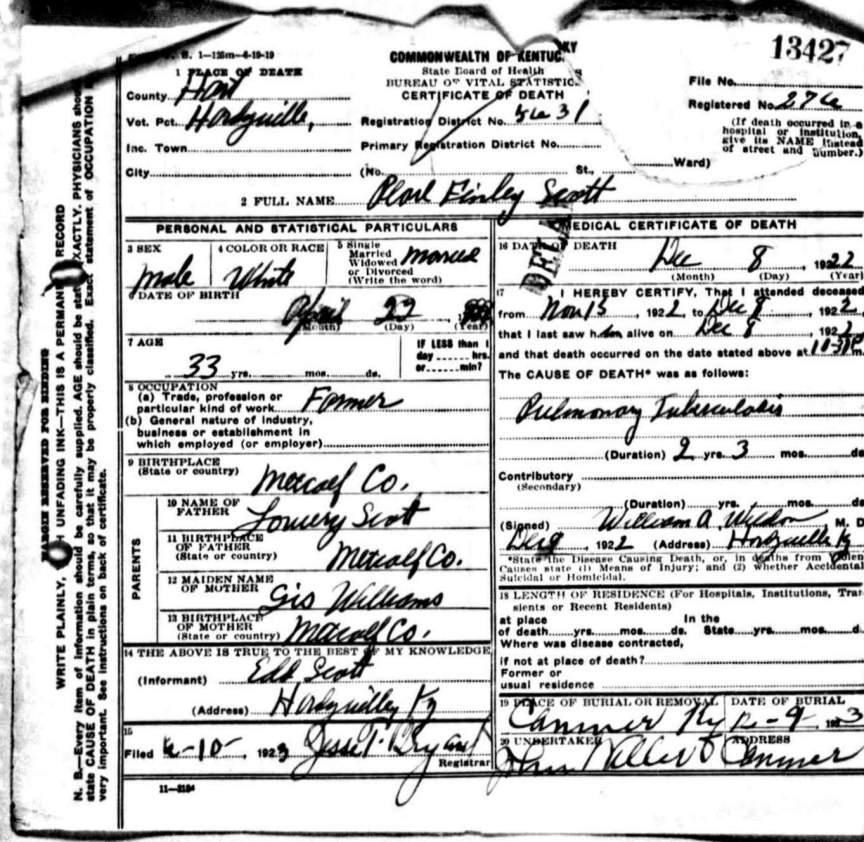 13427
1—125m—4-19-19
COMMONWEALTH OF KENTUCKY
State Board of Health
BUREAU OF VITAL STATISTICS
CERTIFICATE OF DEATH
1 PLACE OF DEATH
County Hart
Vot. Pct. Hardyville,
Inc. Town
City
Registration District No. 5631
Primary Registration District No.
(No. St., Ward)
File No.
Registered No. 276
(If death occurred in a
hospital or institution,
give its NAME instead
of street and number.)
2 FULL NAME Pearl Finley Scott
DELAY
PERSONAL AND STATISTICAL PARTICULARS
3 SEX
Male
4 COLOR OR RACE
White
5 Single
Married
Widowed
or Divorced
(Write the word)
married
6 DATE OF BIRTH
April 22
(Month) (Day) (Year)
7 AGE
33 yrs. mos. ds.
IF LESS than 1
day hrs.
or min?
8 OCCUPATION
(a) Trade, profession or
particular kind of work Farmer
(b) General nature of industry,
business or establishment in
which employed (or employer)
9 BIRTHPLACE
(State or country)
Metcalf Co.
PARENTS
10 NAME OF
FATHER
Lowery Scott
11 BIRTHPLACE
OF FATHER
(State or country)
Metcalf Co.
12 MAIDEN NAME
OF MOTHER
Gis Williams
13 BIRTHPLACE
OF MOTHER
(State or country) Metcalf Co.
14 THE ABOVE IS TRUE TO THE BEST OF MY KNOWLEDGE
(Informant) Scott
(Address) Ky
15
Filed -10- 1923 Jesse P. Bryant
Registrar
11—3184
MEDICAL CERTIFICATE OF DEATH
16 DATE OF DEATH
Dec 8, 1922
(Month) (Day) (Year)
17 I HEREBY CERTIFY, That I attended deceased
from Nov 15, 1922 to Dec 8, 1922
that I last saw him alive on Dec 8, 1922
and that death occurred on the date stated above at
The CAUSE OF DEATH* was as follows:
Pulmonary Tuberculosis
(Duration) 2 yrs. 3 mos. ds
Contributory
(Secondary)
(Duration) yrs. mos. ds
(Signed) William A Weldon, M. D
Dec 9, 1922 (Address) Hardyville Ky
*State the Disease Causing Death, or, in deaths from Violen
Causes state (1) Means of Injury; and (2) whether Accidental
Suicidal or Homicidal.
18 LENGTH OF RESIDENCE (For Hospitals, Institutions, Tran
sients or Recent Residents)
at place In the
of death yrs. mos. ds. State yrs. mos. d.
Where was disease contracted,
if not at place of death?
Former or
usual residence
19 PLACE OF BURIAL OR REMOVAL DATE OF BURIAL
Canmer Ky 12-9-
20 UNDERTAKER ADDRESS
Canmer
MARGIN RESERVED FOR BINDING
WRITE PLAINLY, WITH UNFADING INK—THIS IS A PERMANENT RECORD
N. B.—Every item of information should be carefully supplied. AGE should be stated EXACTLY. PHYSICIANS should
state CAUSE OF DEATH in plain terms, so that it may be properly classified. Exact statement of OCCUPATION
very important. See instructions on back of certificate.